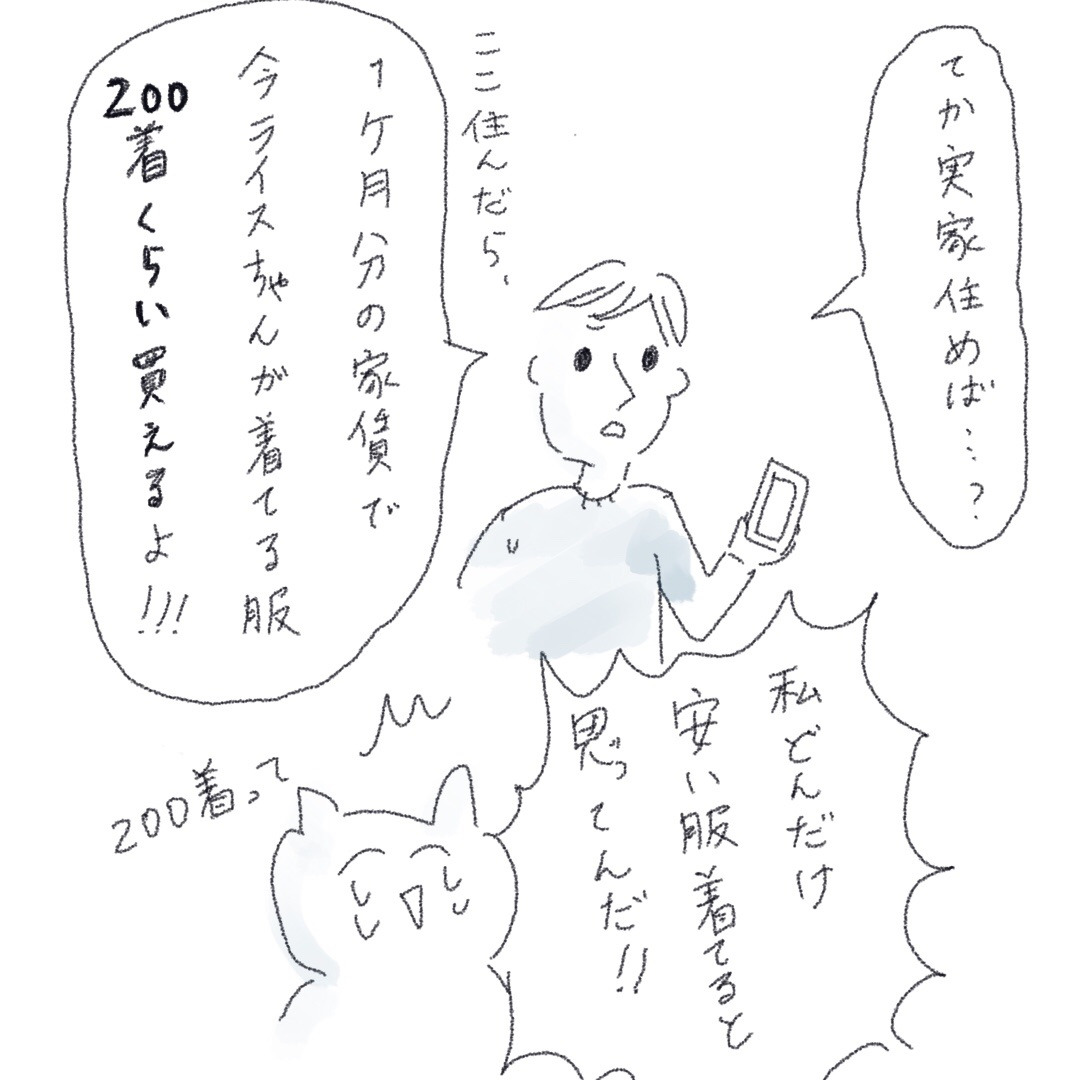 てか実家住めば…?
ここ住んだら、
1ケ月分の家賃で
今ライスちゃんが着てる服
200着くらい買えるよ!!!
私どんだけ
安い服着てると
思ってんだ!!
200着って